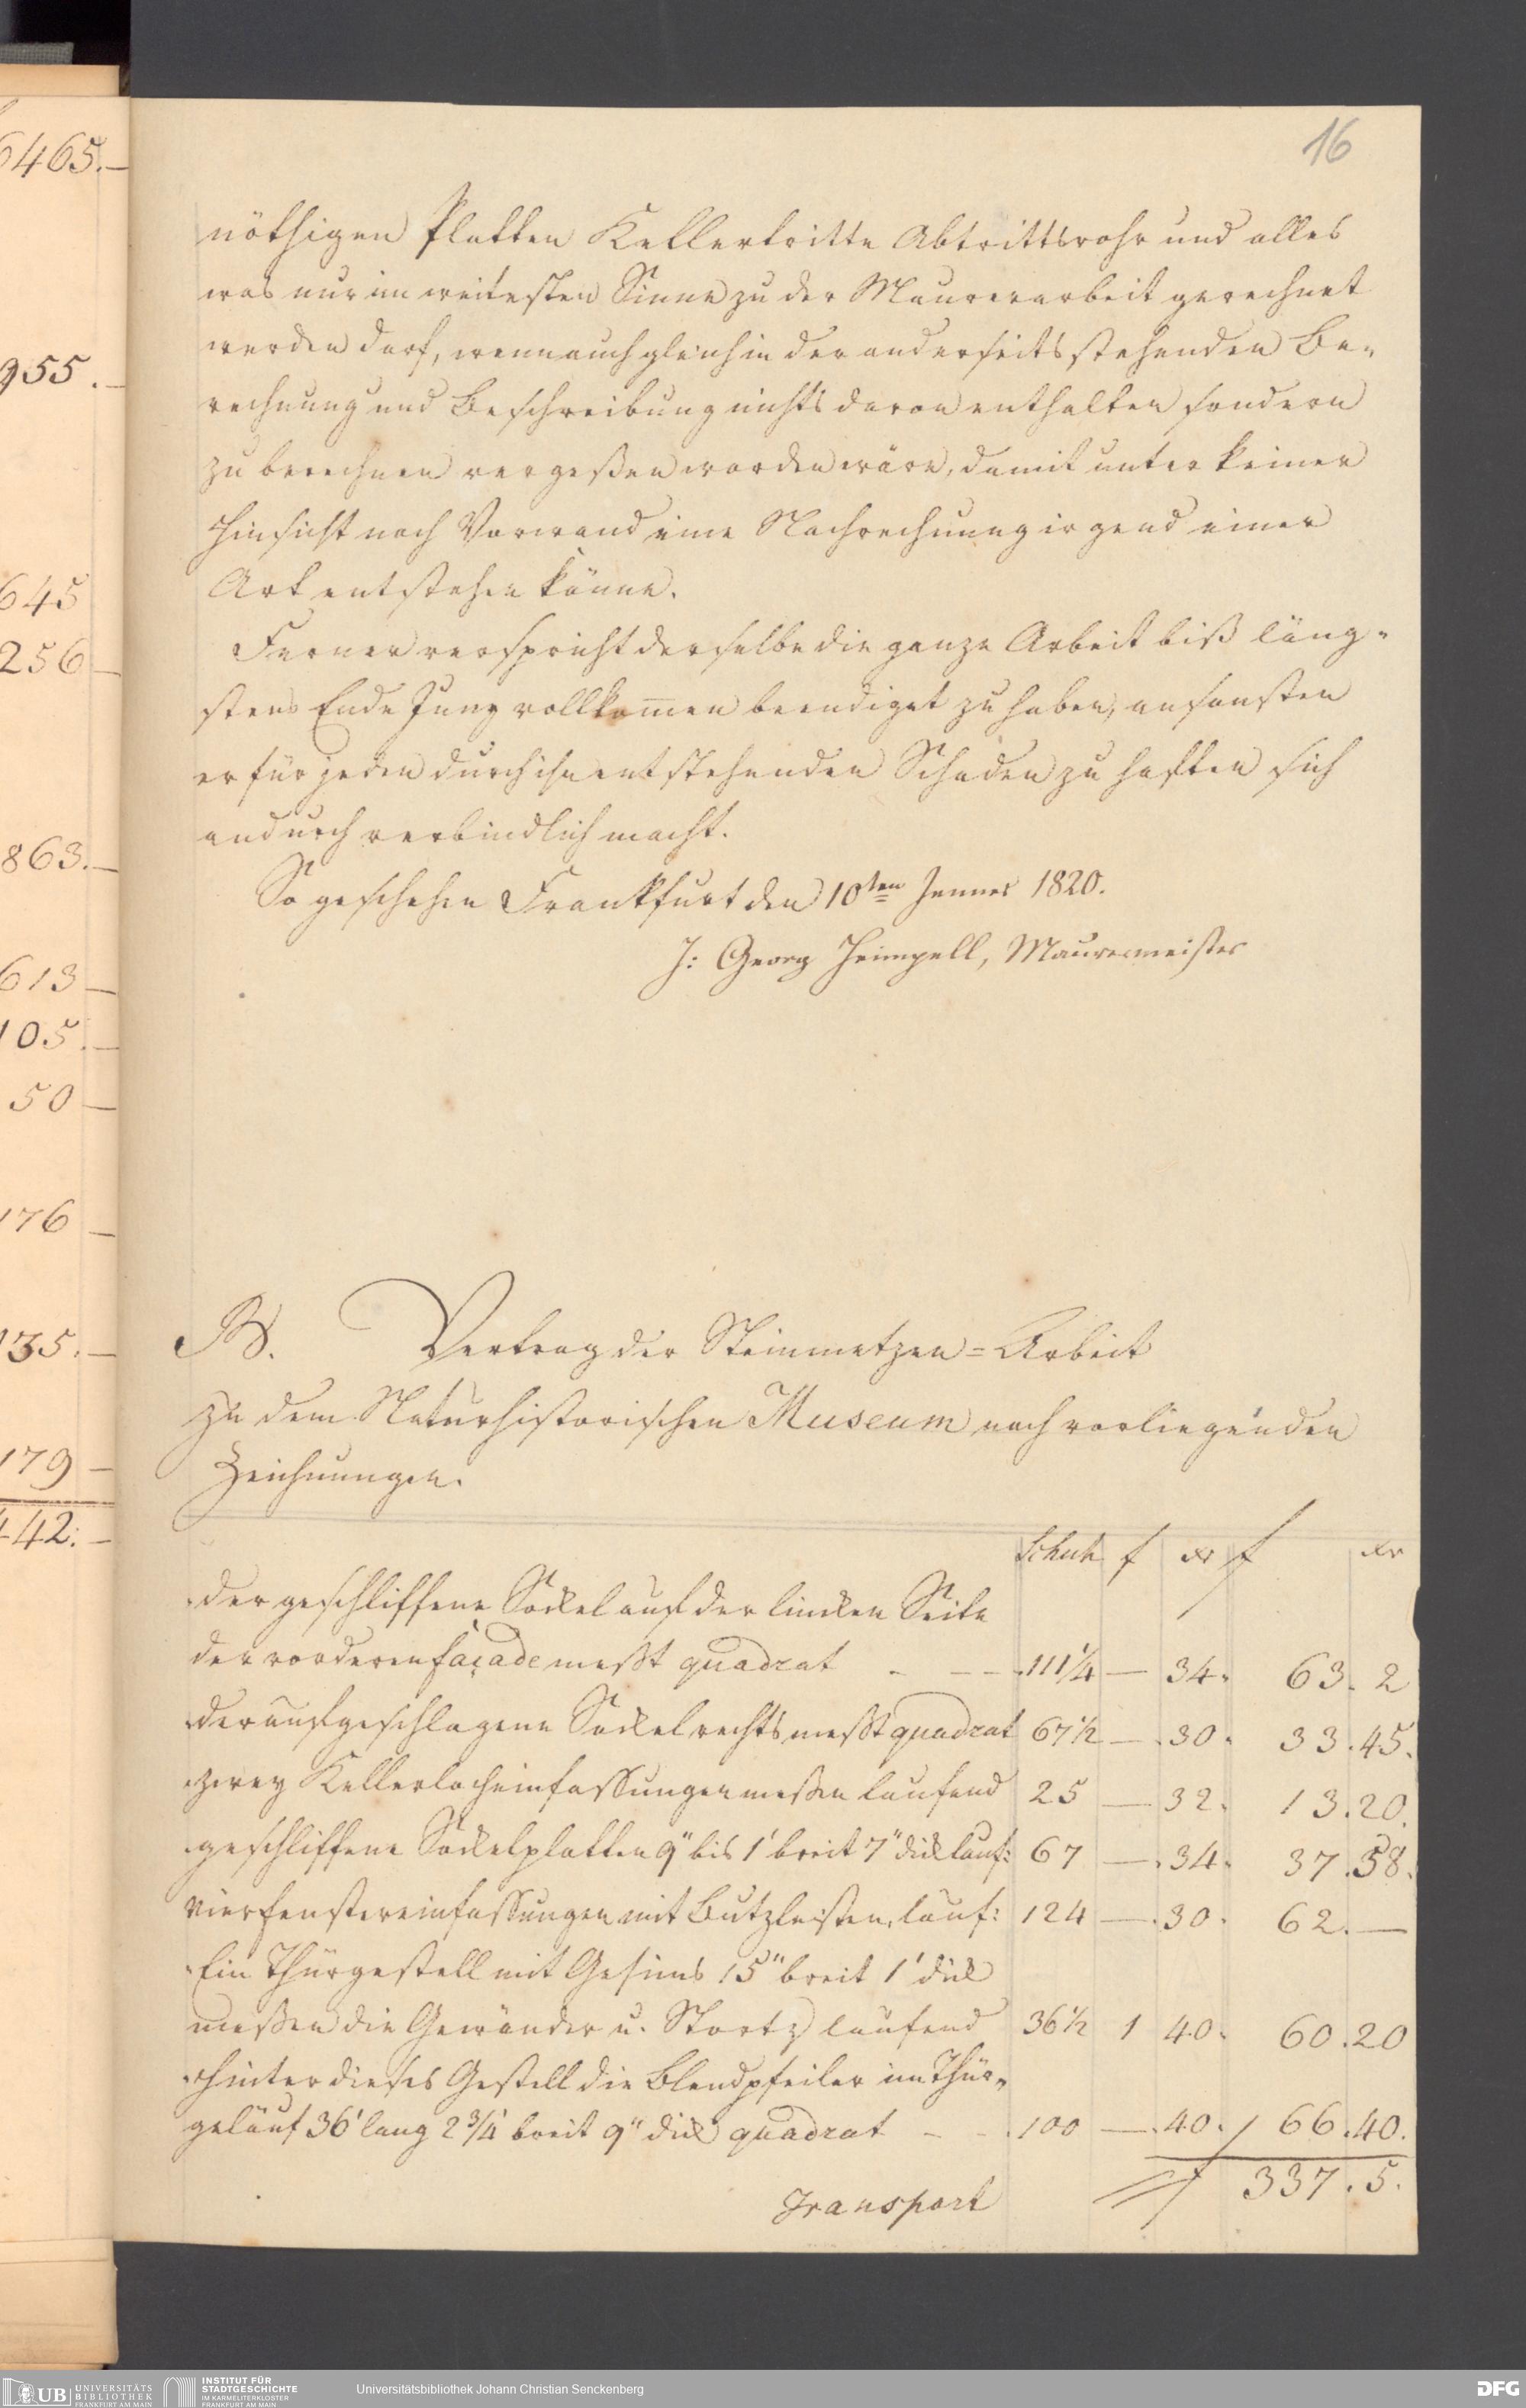 16
6465.—
955.—
645
256—
863.—
613—
105.—
50—
176—
135.—
179—
442:—
nöthigen Platten Kellertritte Abtrittsrohr und alles
was nur im weitesten Sinne zu der Maurerarbeit gerechnet
werden darf, wenn auch gleich in der anderseits stehenden Be-
rechnung und Beschreibung nichts davon enthalten sondern
zu berechnen vergeßen worden wäre, damit unter keiner
Hinsicht noch Vorwand eine Nachrechnung irgend einer
Art entstehen könne.
Ferner verspricht derselbe die ganze Arbeit biß läng-
stens Ende Juny vollkom̄en beendiget zu haben, ansonsten
er für jeden durch ihn entstehenden Schaden zu haften sich
andurch verbindlich macht.
So geschehen Frankfurt den 10ten Jenner 1820.
J: Georg Heimpell, Maurermeister
B. Vertrag der Steinmetzen=Arbeit
zu dem Naturhistorischen Museum nach vorliegenden
Zeichnungen.
Schuh f xr f xr
der geschliffene Sockel auf der lincken Seite
der vorderen façade meßt quadrat - - - 111¼ — 34. 63. 2
der aufgeschlagene Sockel rechts meßt quadrat 67½ — 30. 33.45.
zwey Kellerlocheinfassungen meßen laufend 25 — 32. 13.20.
geschliffene Sockelplatten 9" bis 1' breit 7" dick lauf: 67 — 34. 37.58.
vier fenstereinfassungen mit Butzleisten, lauf: 124 — 30. 62.—
Ein Thürgestell mit Gesims 15" breit 1' dick
meßen die Gewänder u. Stortz laufend 36½ 1 40. 60.20
hinter dieses Gestell die Blendpfeiler im Thür-
geläuf 36' lang 2¾' breit 9" dick quadrat - - 100 — 40. 66.40.
Transport f 337.5.
UB UNIVERSITÄTS BIBLIOTHEK FRANKFURT AM MAIN
INSTITUT FÜR STADTGESCHICHTE IM KARMELITERKLOSTER FRANKFURT AM MAIN
Universitätsbibliothek Johann Christian Senckenberg
DFG